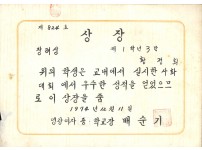 제 824 호
상장
장려상
제 1학년 3반
황정희
위의 학생은 교내에서 실시한 사화
대회에서 우수한 성적을 얻었으므
로 이 상장을 줌
1974년 12월 11일
학교장 배순기